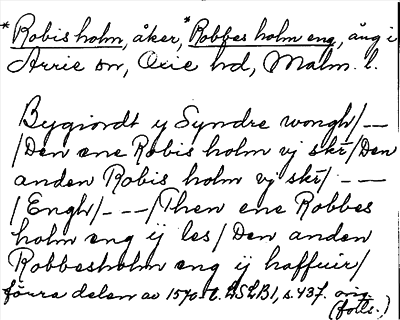 *Robis holm, åker, *Robbes holm eng, äng i
Arrie sn, Oxie hd, Malm. l.
Bygiordt y Syndre wongh/ – –
/Den ene Robis holm vj skr̄/Den
anden Robis holm vj skr̄/ – – –
/Engh/ – – –/Then ene Robbes
holm eng ij les/ Den anden
Robbesholm eng ij haffuir/
förra delen av 1570-t. s. 437.
(forts.)